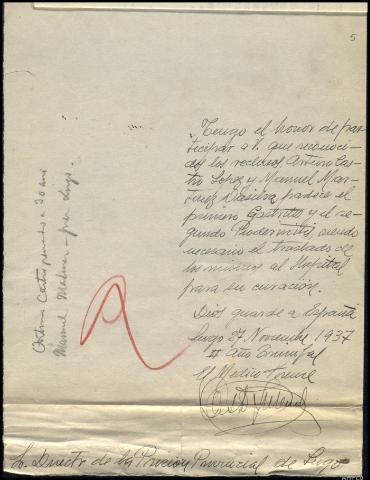 5
Tengo el honor de par-
ticipar a V. que reconoci-
dos los reclusos Arturo Cas-
tro Lopez y Manuel Mar-
tinez Dasilva padece el
primero Gastritis y el se-
gundo Piodermitis, siendo
necesario el traslado de
los mismos al Hospital
para su curación.
Dios guarde a España
Lugo 27 Noviembre 1937
II Año Triunfal
El Medico Forense
Arturo Castro penado a 30 años
Manuel
Sr. Director de la Prision Provincial de Lugo